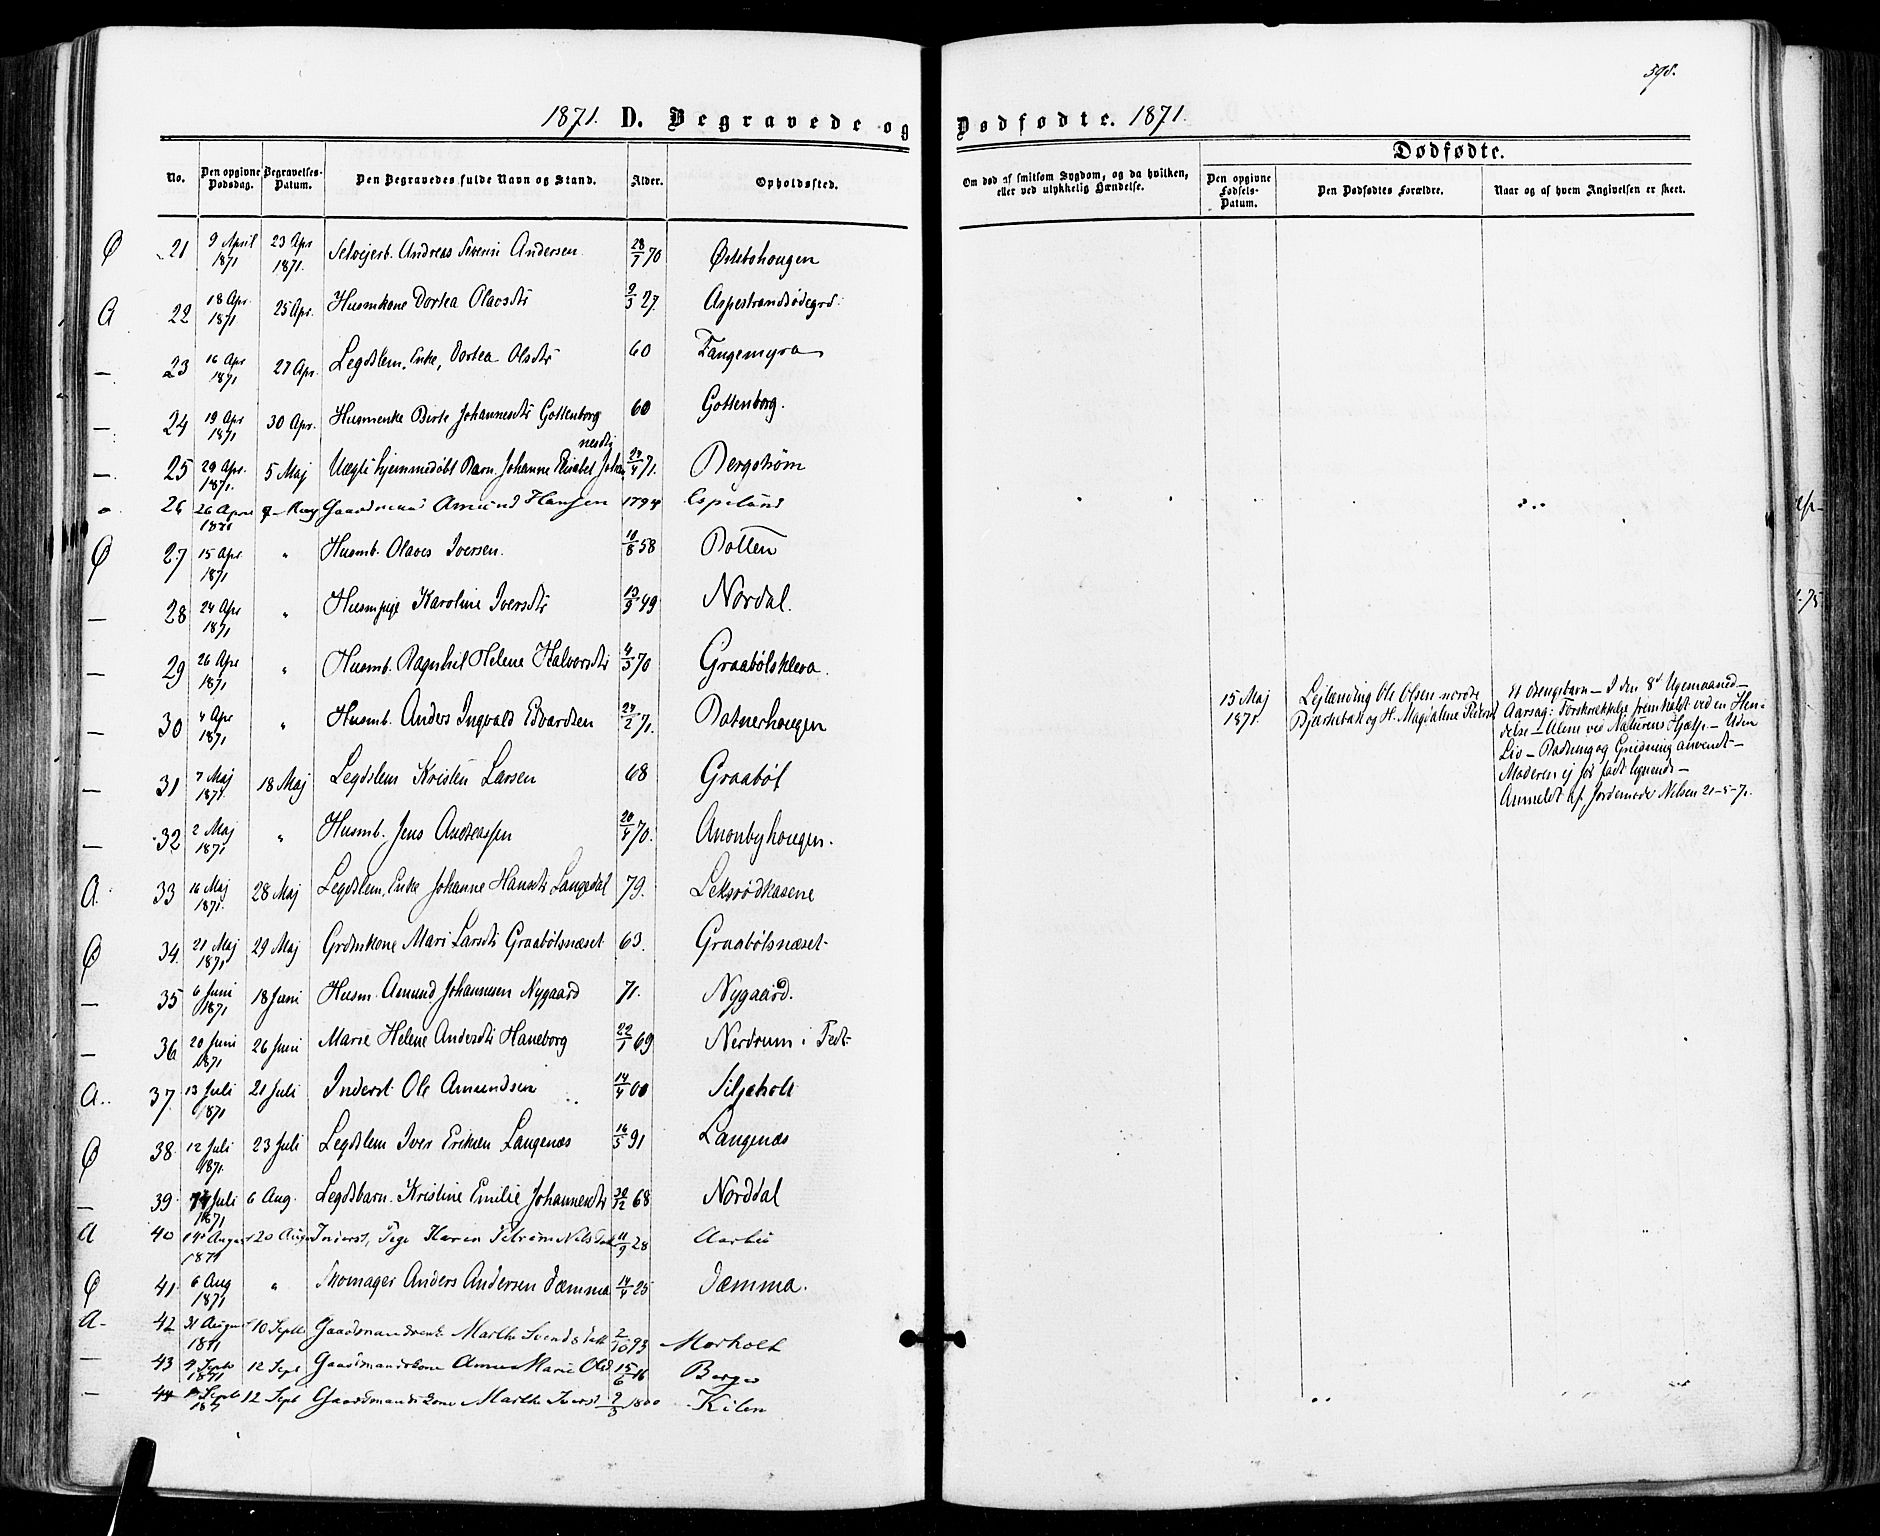 398.
1871. D. Begravede og Dødfødte. 1871.
Dødfødte.
No. Den opgivne Dødsdag. Begravelses-Datum. Den Begravedes fulde Navn og Stand. Alder. Opholdssted. Om død af smitsom Sygdom, og da hvilken, eller ved ulykkelig Hændelse. Den opgivne Fødsels-Datum. Den Dødfødtes Forældre. Naar og af hvem Angivelsen er skeet.
Ø 21 9 April 1871 23 Apr 1871. Selvejerb. Andreas Severin Andersen 28/7 70 Østebohougen
A 22 18 Apr. 1871 25 Apr. Husmkone Dortea Olavsdtr 9/5 27. Aspestrandsødegrd.
— 23 16 Apr 1871 27 Apr. Legdslem, Enke, Dortea Olsdtr 60 Tangemyra
— 24 19 Apr 1871 30 Apr. Husmenke Berte Johannesdtr Gottenborg 60 Gottenborg.
— 25 29 Apr. 1871. 5 Maj Uægte hjemmedøbt Barn. Johanne Elisabet Johannesdtr 24/4 71. Bergstrøm
26 26 Apr 1871 Gaardmand Amund Hansen 1794 Espelund
Ø 27 15 Apr 1871 " Husmb. Olaves Iversen. 10/8 58 Botten
— 28 24 Apr 1871 " Husmpige Karoline Iversdtr 13/9 49 Nordal.
— 29 26 Apr 1871 " Husmb. Ragnhil Helene Halvorsdtr 4/5 70 Graabølskleva.
— 30 4 Apr 1871 " Husmb. Anders Ingvald Edvardsen 24/2 71. Botnerhougen
— 31 7 Maj 1871. 18 Maj Legdslem Kristen Larsen 68 Graabøl
— 32 2 Maj 1871 " Husmb. Jens Andreassen 20/4 70. Anonbyhougen.
A. 33 16 Maj 1871. 28 Maj Legdslem, Enke Johanne Hansdtr Langedal 79. Leksrødkasene
Ø 34. 21 Maj 1871 29 Maj Grdmkone Mari Larsdtr Graabølsnæset 63. Graabølsnæset
— 35 6 Juni 1871 18 Juni Husm. Amund Johannesen Nygaard 71. Nygaard.
— 36 20 Juni 1871 26 Juni Marie Helene Andersdtr Haneborg 22/1 69 Nerdrum i Fedt
A. 37. 13 Juli 1871 21 Juli Inderst Ole Amundsen 14/4 00 Siljeholt
Ø 38. 12 Juli 1871. 23 Juli Legdslem Iver Eriksen Langenæs 16/5 91 Langenæs
— 39 Juli 1871 6 Aug. Legdsbarn. Kristine Emilie Johannesdtr 30/12 68 Norddal
A 40 14 August 1871 20 August Inderst, Pige Karen Nilsdatt 11/9 28 Aarbu
Ø 41. 6 Aug 1871 " Skomager Anders Andersen Dæmma 14/4 25 Dæmma.
A 42 31 August 1871 10 Septb Gaardmandsenk. Marthe Svendsdatt 2/10 93 Morholt
— 43 4 Septb 1871 12 Sept Gaardmandskone Anne Marie Olsd 15/6 16 Berger
— 44 Septb 1871 12 Sept Gaardmandskone Marthe Iversd 9/5 1800 Kilen
15 Maj 1871. Lejlænding Ole Olsen nordre Bjørkebæk og H. Magdalene Pedersd
Et Drengebarn — I den 8de Ugemaaned —
Aarsag: Forskrækkelse fremkaldt ved en Hen-
delse — Alene ved Naturens Hjælp — Uden
Liv — Badning og Gnidning anvendt —
Moderen ej før født lignende —
Anmeldt af Jordemoder Nilsen 21-5-71.